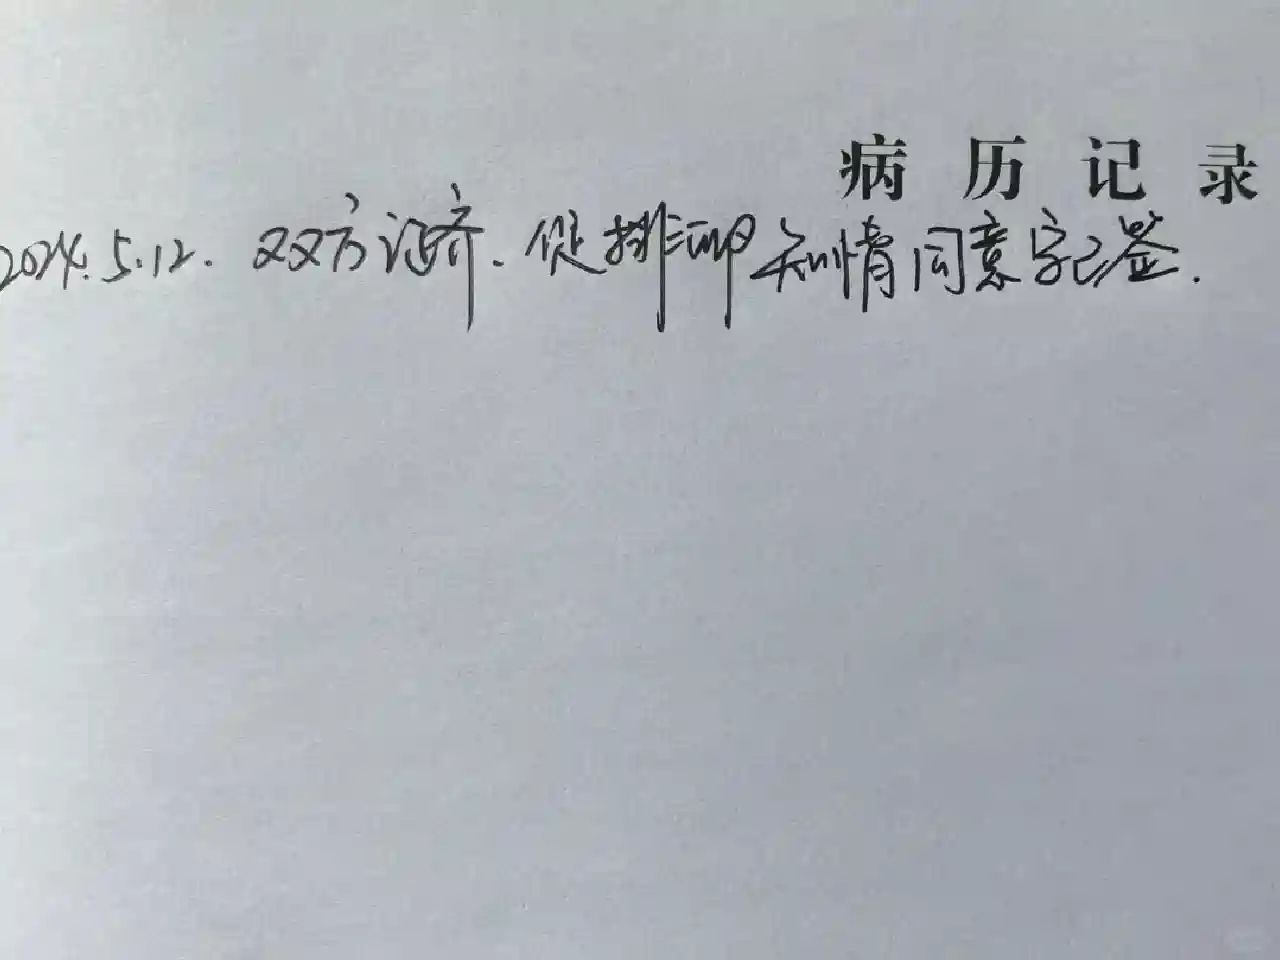 病历记录
2024.5.12. 双方证齐.促排卵知情同意字已签.